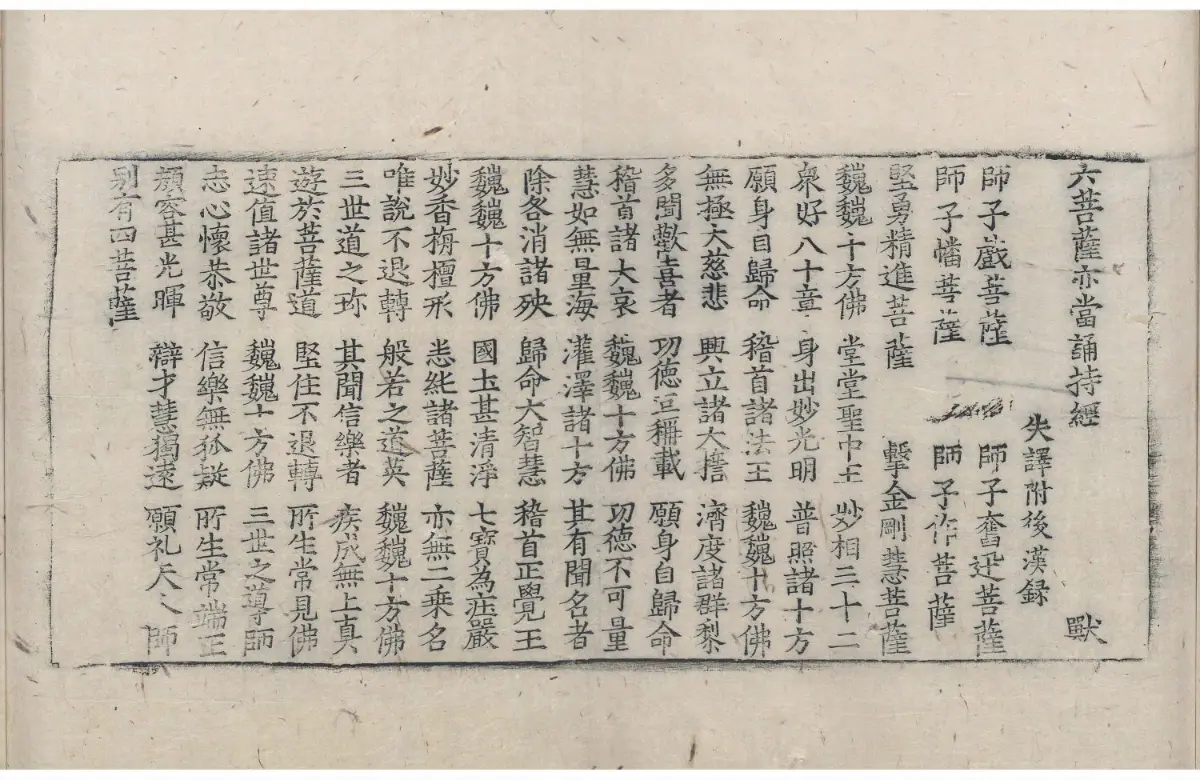 六菩薩亦當誦持經 獸
失譯附後漢録
師子戲菩薩 師子奮迅菩薩
師子幡菩薩 師子作菩薩
堅勇精進菩薩 擊金剛慧菩薩
巍巍十方佛 堂堂聖中王 妙相三十二
衆好八十章 身出妙光明 普照諸十方
願身自歸命 稽首諸法王 巍巍十方佛
無極大慈悲 興立諸大擔 濟度諸群梨
多聞歡喜者 功德豆稱載 願身自歸命
稽首諸大哀 巍巍十方佛 功德不可量
慧如無量海 灌澤諸十方 其有聞名者
除各消諸殃 歸命大智慧 稽首正覺王
巍巍十方佛 國土甚清淨 七寶為莊嚴
妙香栴檀形 悉純諸菩薩 亦無二乗名
唯說不退轉 般若之道英 巍巍十方佛
三世道之珎 其聞信樂者 疾成無上真
遊於菩薩道 堅住不退轉 所生常見佛
速值諸世尊 巍巍十方佛 三世之導師
志心懷恭敬 信樂無狐疑 所生常端正
顏容甚光暉 辯才慧獨遠 願礼天人師
别有四菩薩